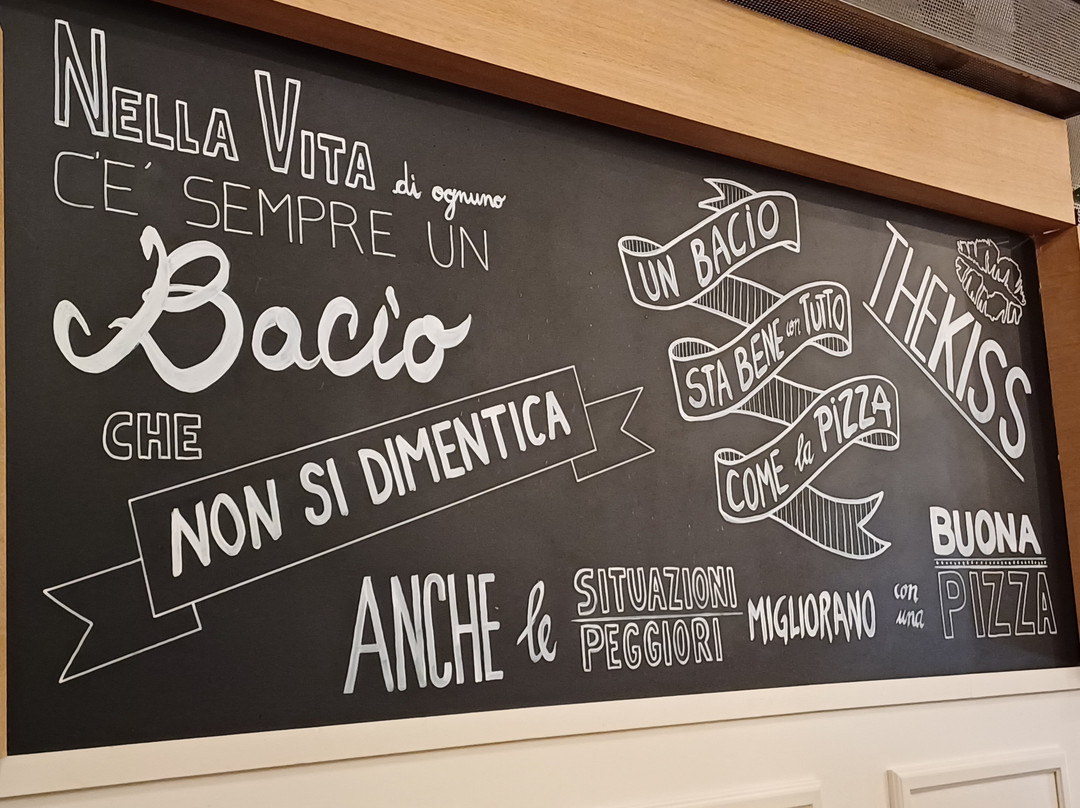 NELLA VITA di ognuno
C'E' SEMPRE UN
Bacio
CHE
NON SI DIMENTICA
UN BACIO
STA BENE con TUTTO
COME la PIZZA
THEKISS
ANCHE le SITUAZIONI
PEGGIORI MIGLIORANO con
una BUONA
PIZZA